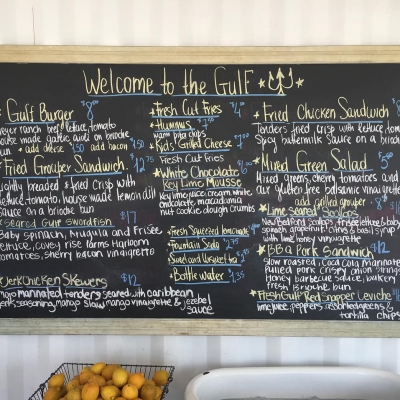 Welcome to the Gulf
Gulf Burger 8.00
ranch beef, lettuce, tomato
house made garlic aioli on brioche
bun add cheese .50 add bacon 1.50
Fried Grouper Sandwich 10.75
lightly breaded & fried crisp with
lettuce, tomato, house made lemon dill
sauce on a brioche bun
Seared Gulf Swordfish $17
baby spinach, arugula and frisee
lettuce, covey rise farms heirloom
tomatoes, sherry bacon vinaigrette
Jerk Chicken Skewers $12
mojo marinated tenders seared with caribbean
jerk seasoning, mango slaw, mango vinaigrette & jezebel
sauce
Fresh Cut Fries $4.00
Hummus
warm pita chips
Kids Grilled Cheese 7.00
Fresh Cut Fries
White Chocolate
Key Lime Mousse
Key lime juice, cream, white
chocolate, macadamia
nut cookie dough crumbs
Fresh Squeezed lemonade
Fountain Soda 2.75
Sweet and Unsweet tea
Bottle water 1.35
Fried Chicken Sandwich
Tenders fried crisp with lettuce, tom
Spicy buttermilk sauce on a brioch
bun
Mixed Green Salad
Mixed greens, cherry tomatoes and
our gluten free balsamic vinaigrette
add grilled
Lime Seared Scallops
lettuce & baby
spinach, grapefruit, citrus & basil syrup
with lime honey vinaigrette
BBQ Pork Sandwich $12
slow roasted, Coca Cola marinated
pulled pork, crispy onion strings
barbecue sauce, bakery
fresh brioche bun
Fresh Gulf Red Snapper Ceviche
lime juice, peppers,
tortilla chips